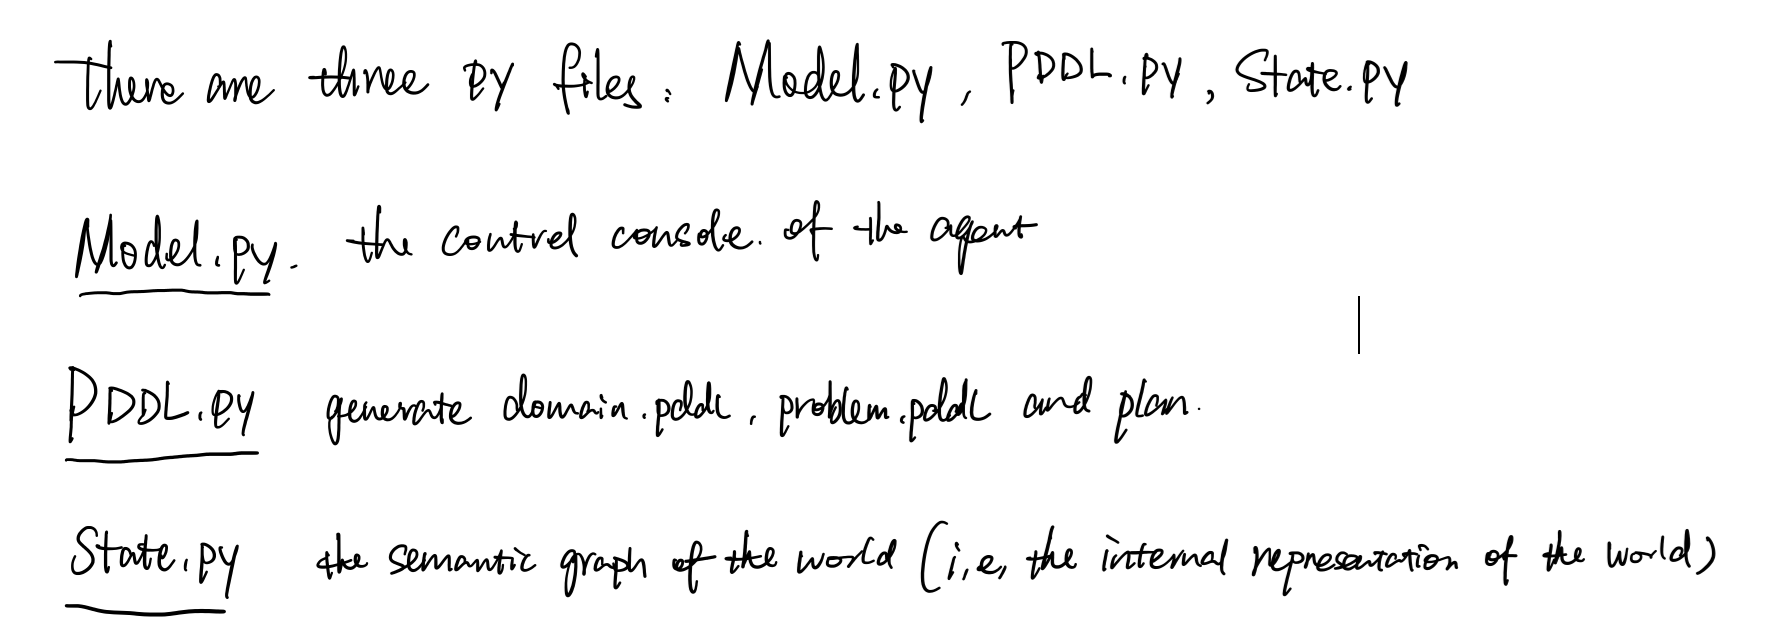 There are three py files: Model.py, PDDL.py, State.py
Model.py. the control console. of the agent
PDDL.py generate domain.pddl, problem.pddl and plan.
State.py the semantic graph of the world (i,e, the internal representation of the world)